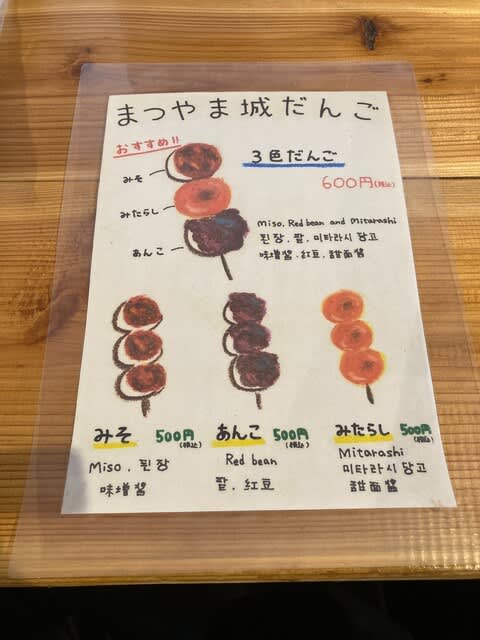 まつやま城だんご
おすすめ!!
3色だんご
600円(税込)
みそ
みたらし
あんこ
Miso, Red bean and Mitarashi
된장, 팥, 미타라시 당고
味増醤, 紅豆, 甜面醤
みそ 500円(税込)
Miso, 된장
味増醤
あんこ 500円(税込)
Red bean
팥, 紅豆
みたらし 500円(税込)
Mitarashi
미타라시 당고
甜面醤